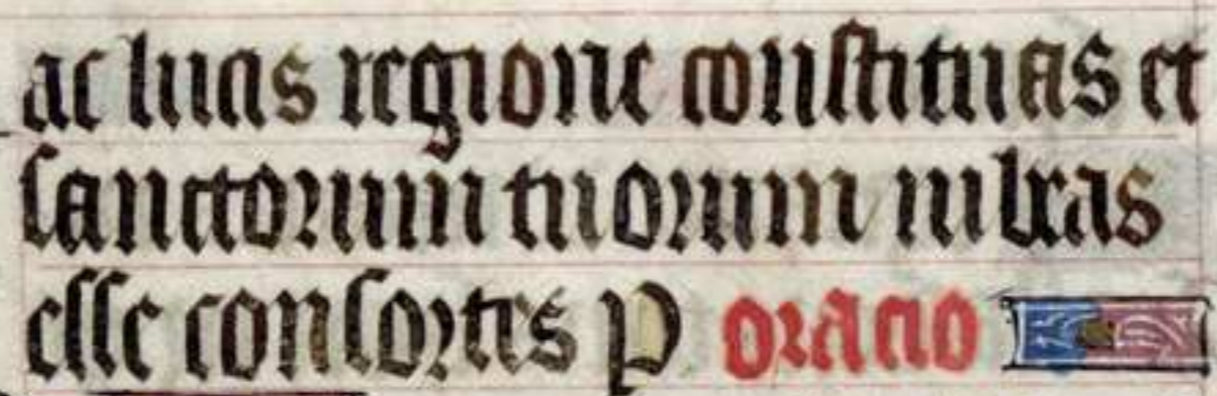 ac lucis regione constituas et
sanctorum tuorum iubeas
esse consortes P oracio